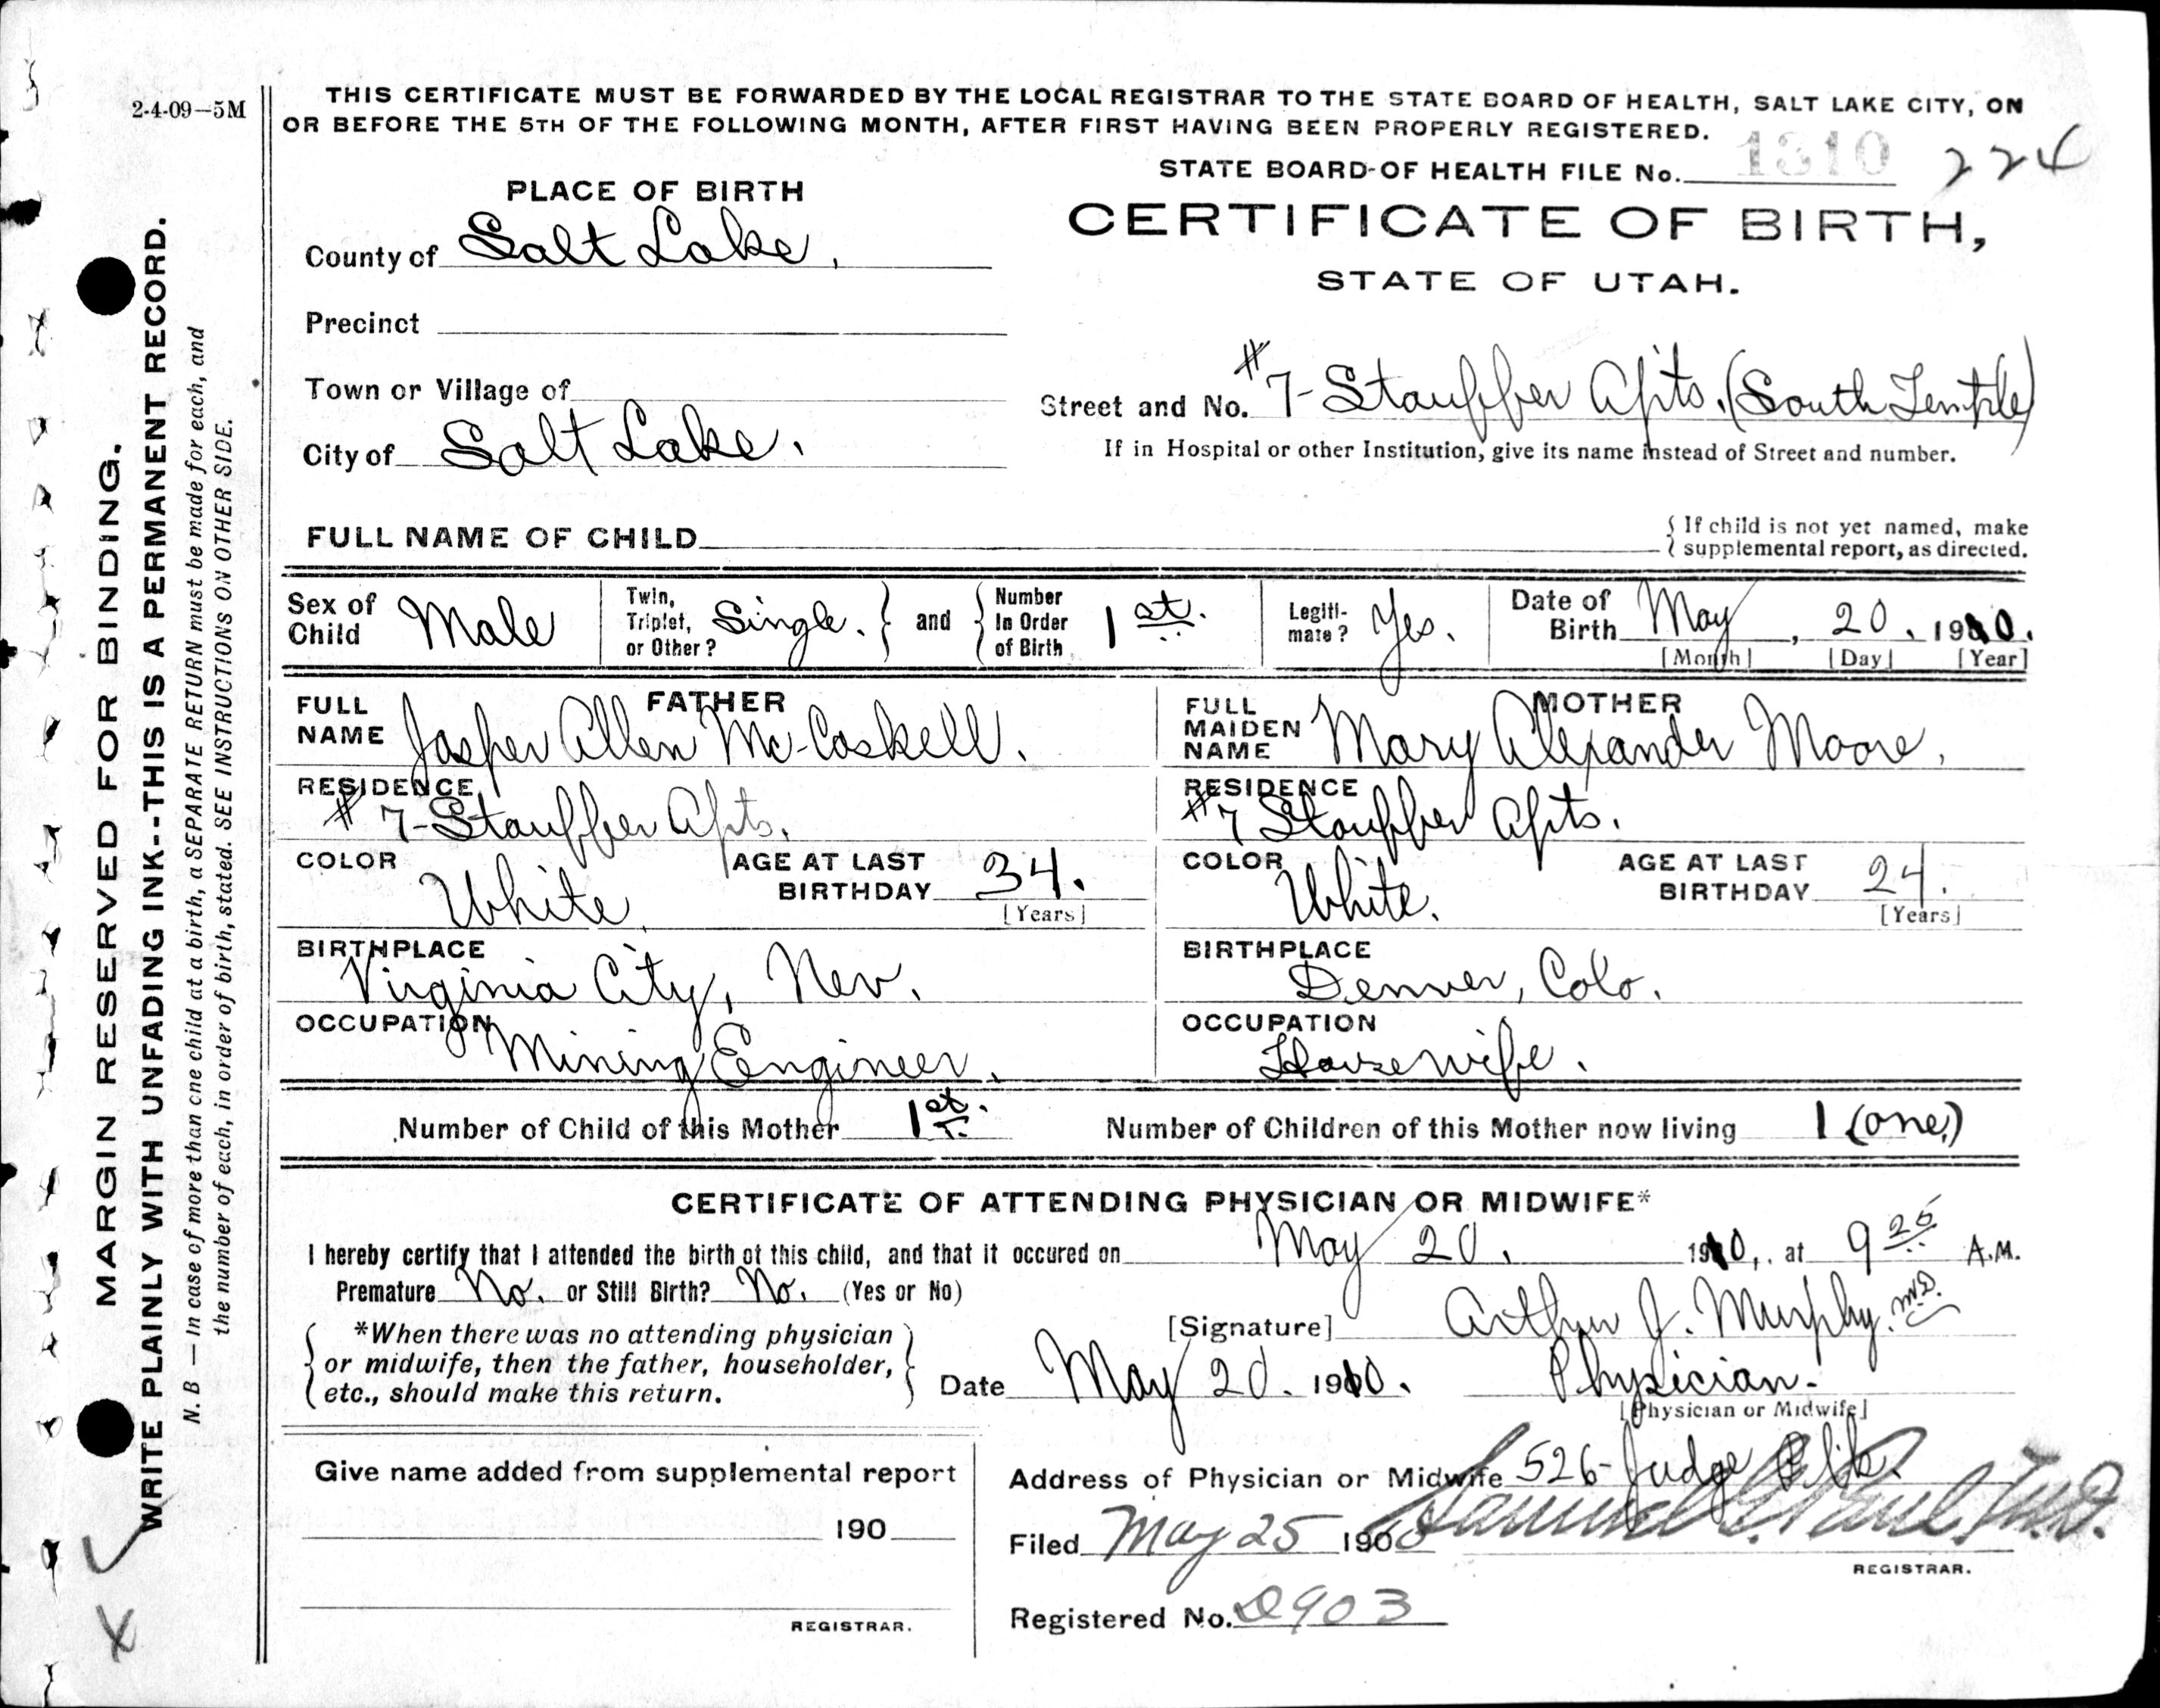 2-4-09—5M
THIS CERTIFICATE MUST BE FORWARDED BY THE LOCAL REGISTRAR TO THE STATE BOARD OF HEALTH, SALT LAKE CITY, ON
OR BEFORE THE 5TH OF THE FOLLOWING MONTH, AFTER FIRST HAVING BEEN PROPERLY REGISTERED.
STATE BOARD OF HEALTH FILE No. 1310 224
PLACE OF BIRTH
CERTIFICATE OF BIRTH,
STATE OF UTAH.
County of Salt Lake,
Precinct
Town or Village of
Street and No. #7- Stauffer Apts. (South Temple)
If in Hospital or other Institution, give its name instead of Street and number.
City of Salt Lake.
FULL NAME OF CHILD
{ If child is not yet named, make
supplemental report, as directed.
Sex of Child Male
Twin, Triplet, or Other? Single. } and { Number In Order of Birth 1st.
Legiti-mate? Yes.
Date of Birth May, 20. 1910.
[Month] [Day] [Year]
FATHER
FULL NAME Jasper Allen Mc-Caskell.
RESIDENCE
#7-Stauffer Apts.
COLOR White
AGE AT LAST BIRTHDAY 34.
[Years]
BIRTHPLACE
Virginia City, Nev.
OCCUPATION
Mining Engineer.
MOTHER
FULL MAIDEN NAME Mary Alexander Moore,
RESIDENCE
#7 Stauffer Apts.
COLOR White.
AGE AT LAST BIRTHDAY 24.
[Years]
BIRTHPLACE
Denver, Colo.
OCCUPATION
Housewife.
Number of Child of this Mother 1st.
Number of Children of this Mother now living 1 (one)
CERTIFICATE OF ATTENDING PHYSICIAN OR MIDWIFE*
I hereby certify that I attended the birth of this child, and that it occured on May 20, 1910, at 9 25 A.M.
Premature No. or Still Birth? No. (Yes or No)
[Signature] Arthur J. Murphy. M.D.
*When there was no attending physician
or midwife, then the father, householder,
etc., should make this return.
Date May 20. 1910.
Physician.
[Physician or Midwife]
Give name added from supplemental report
190
REGISTRAR.
Address of Physician or Midwife 526- Judge Blk.
Filed May 25 1900 Samuel G. Paul, M.D.
REGISTRAR.
Registered No. D903
MARGIN RESERVED FOR BINDING.
WRITE PLAINLY WITH UNFADING INK--THIS IS A PERMANENT RECORD.
N. B — In case of more than one child at a birth, a SEPARATE RETURN must be made for each, and
the number of each, in order of birth, stated. SEE INSTRUCTIONS ON OTHER SIDE.